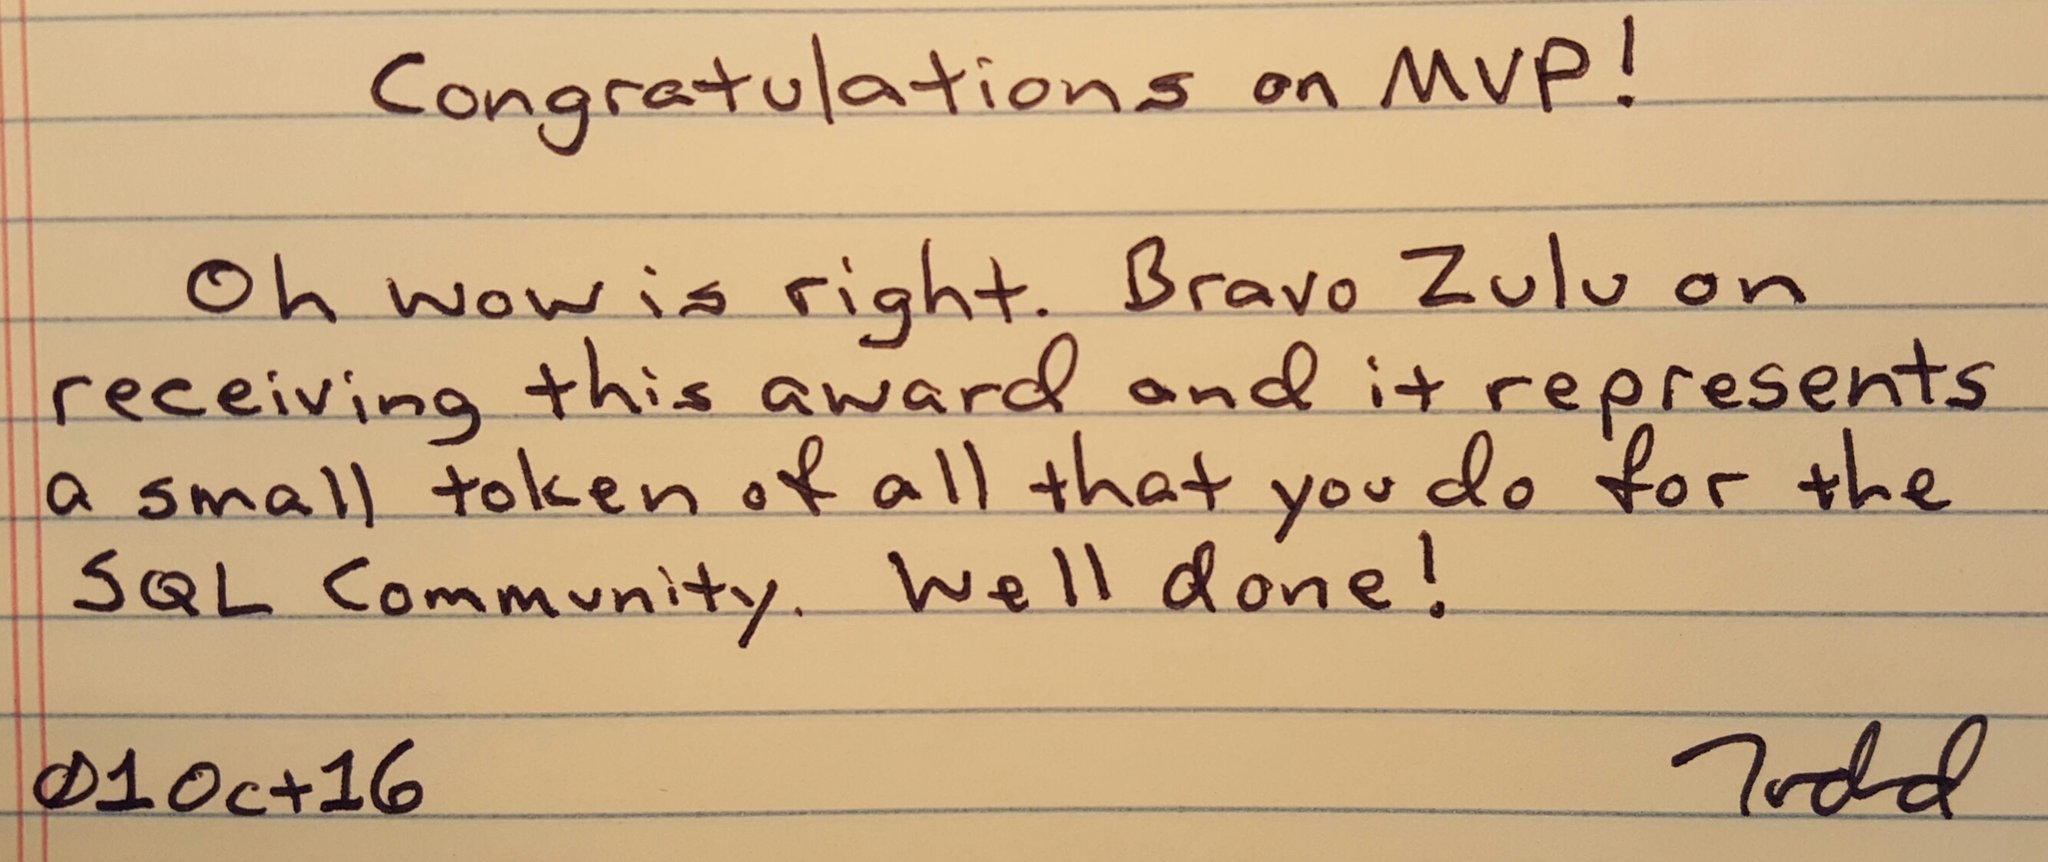 Congratulations on MVP!
Oh wow is right. Bravo Zulu on
receiving this award and it represents
a small token of all that you do for the
SQL Community. Well done!
01Oct16
Todd